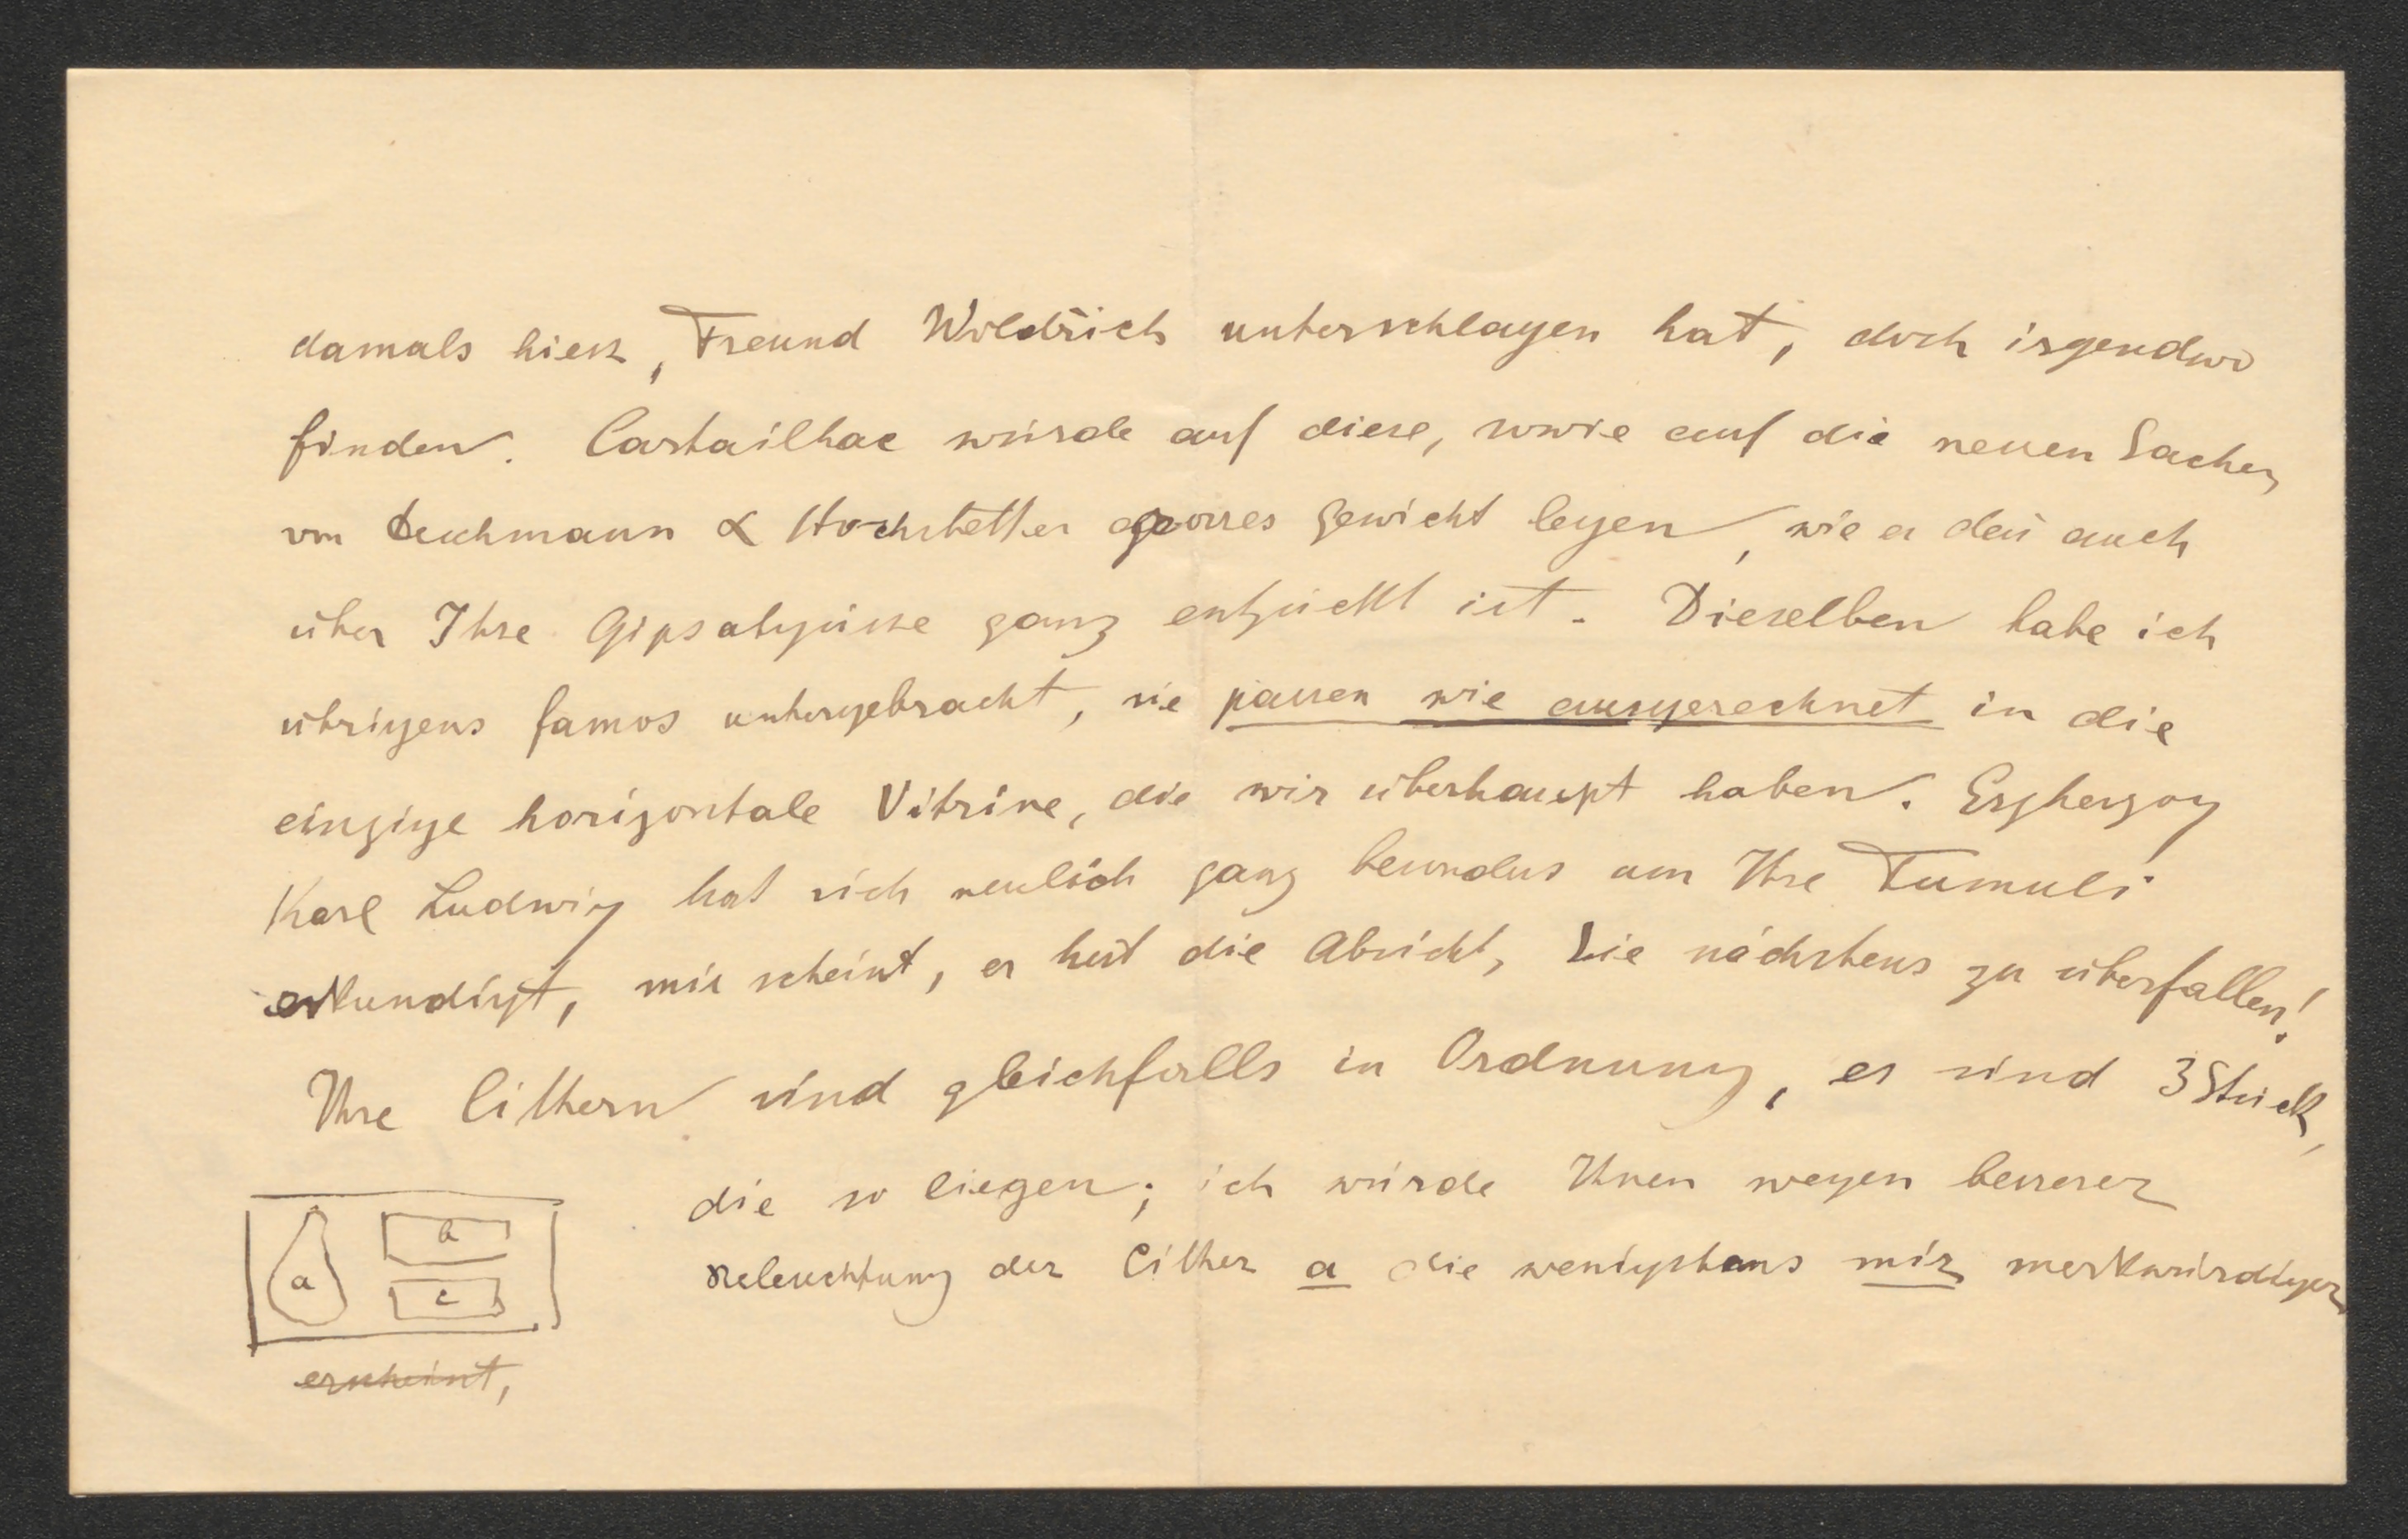 damals hiess, Freund Woldřich unterschlagen hat, doch irgendwo
finden. Cartailhac würde auf diese, sowie auf die neuen Sachen
von Deschmann & Hochstetter grosses Gewicht legen, wie er den̄ auch
über Ihre Gipsabgüsse ganz entzückt ist. Dieselben habe ich
übrigens famos untergebracht, sie passen wie ausgerechnet in die
einzige horizontale Vitrine, die wir überhaupt haben. Erzherzog
Karl Ludwig hat sich neulich ganz besonders um Ihre Tumuli
erkundigt, mir scheint, er hat die Absicht, Sie nächstens zu überfallen!
Ihre Cithern sind gleichfalls in Ordnung, es sind 3 Stück,
die so liegen; ich würde Ihnen wegen besserer
Beleuchtung der Cither a die wenigstens mir merkwürdiger
a
b
c
erscheint,